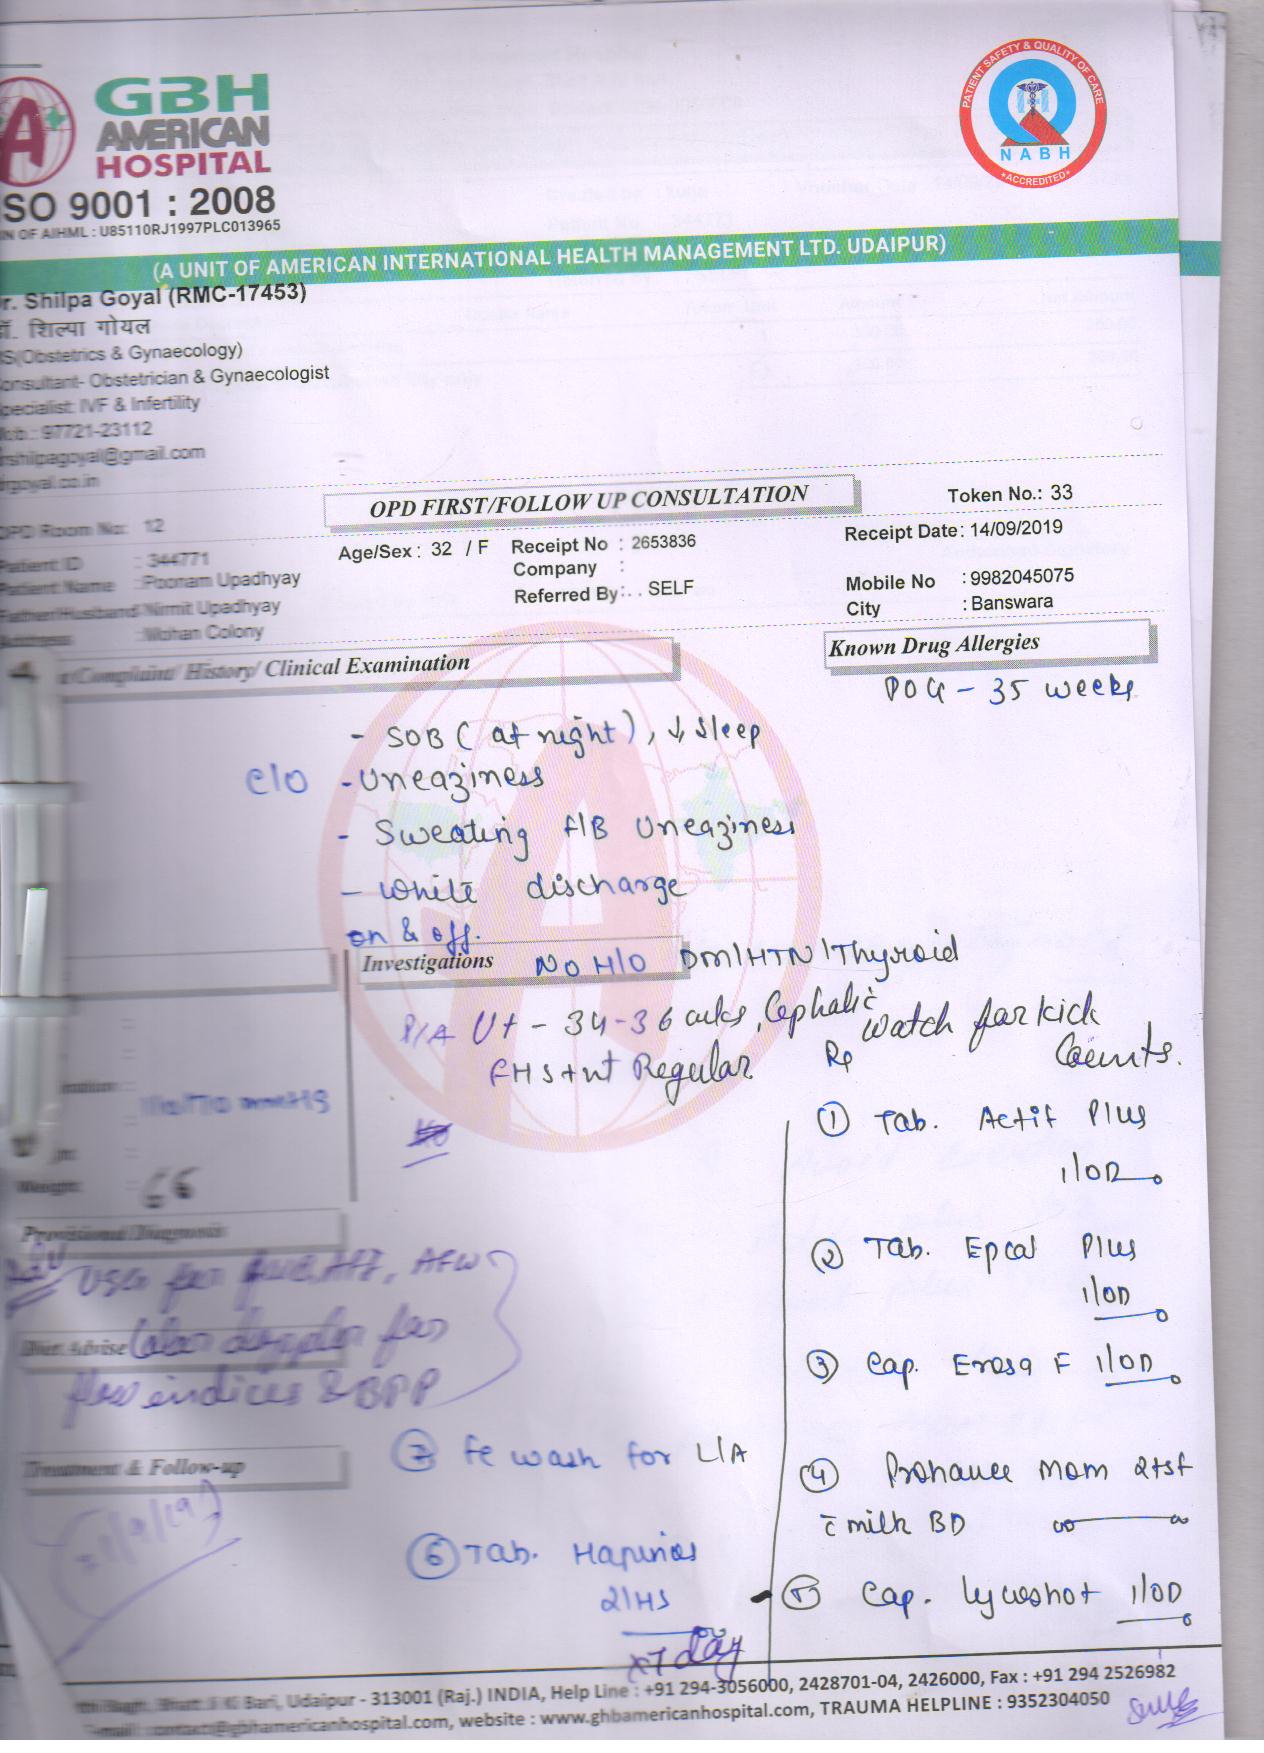 GBH
AMERICAN
HOSPITAL
ISO 9001 : 2008
OF AIHML : U85110RJ1997PLC013965
PATIENT SAFETY & QUALITY OF CARE
NABH
ACCREDITED
(A UNIT OF AMERICAN INTERNATIONAL HEALTH MANAGEMENT LTD. UDAIPUR)
Dr. Shilpa Goyal (RMC-17453)
डॉ. शिल्पा गोयल
(Obstetrics & Gynaecology)
Consultant- Obstetrician & Gynaecologist
Specialist: IVF & Infertility
Mob.: 97721-23112
drshilpagoyal@gmail.com
drgoyal.co.in
OPD FIRST/FOLLOW UP CONSULTATION
Token No.: 33
OPD Room No: 12
Patient ID : 344771
Patient Name : Poonam Upadhyay
Father/Husband: Nirmit Upadhyay
Address : Mohan Colony
Age/Sex : 32 / F
Receipt No : 2653836
Company :
Referred By : . . SELF
Receipt Date: 14/09/2019
Mobile No : 9982045075
City : Banswara
Complaint/ History/ Clinical Examination
Known Drug Allergies
POG - 35 weeks
- SOB (at night), ↓ sleep
C/O - Uneaziness
- Sweating f/B Uneaziness
- White discharge
on & off.
Investigations
NO H/O DM/HTN/Thyroid
P/A Ut - 34-36 wks, Cephalic
FHS + nt Regular
watch for kick
Counts.
Rp
110/70 mmHg
Weight: 66
Provisional Diagnosis
USG for AFI,
Diet Advise
Color doppler for
flow indices & BPP
Treatment & Follow-up
① Tab. Actif Plus
1/OD
② Tab. Epcal Plus
1/OD
③ Cap. Erosa F 1/OD
④ Prohance Mom 2tsf
c̄ milk BD
⑤ Cap. Lycoshot 1/OD
⑥ Tab. Hapinos
2/HS
x7 day
⑦ fe wash for L/A
Bhatt Ji Ki Bari, Udaipur - 313001 (Raj.) INDIA, Help Line : +91 294-3056000, 2428701-04, 2426000, Fax : +91 294 2526982
E-mail : contact@gbhamericanhospital.com, website : www.ghbamericanhospital.com, TRAUMA HELPLINE : 9352304050